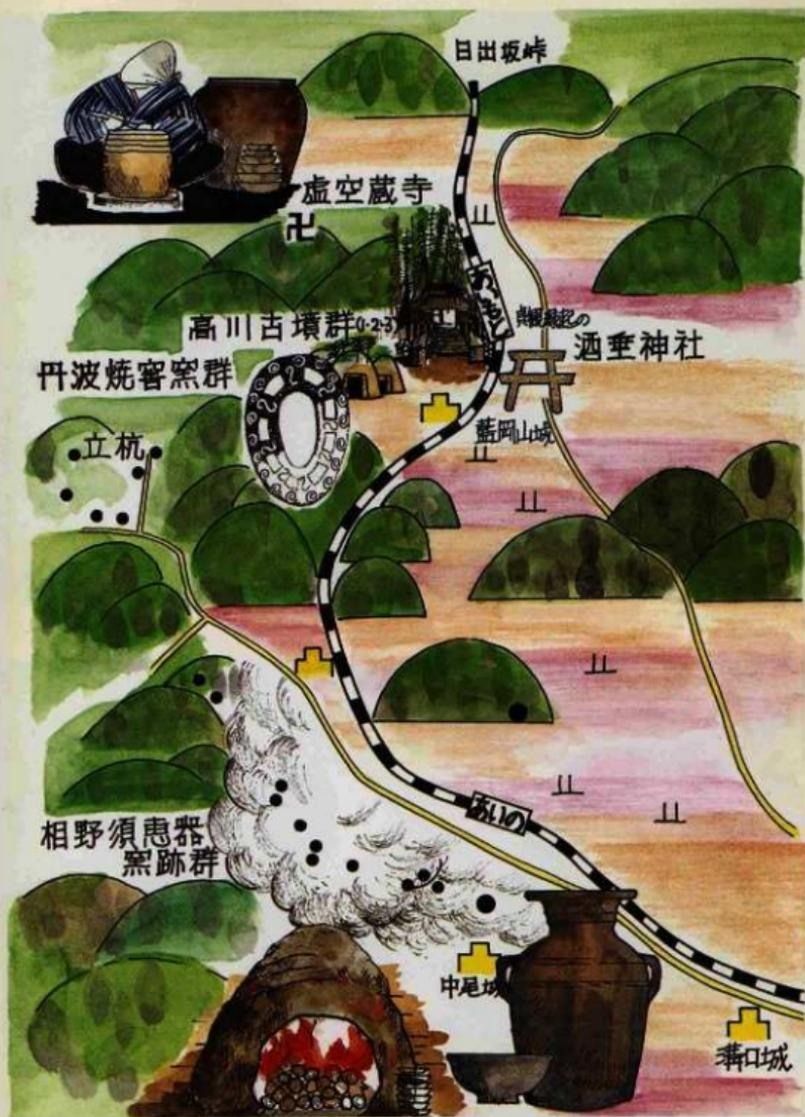 日出坂峠
虚空蔵寺
卍
あいもと
高川古墳群(1・2・3)
酒垂神社
丹波焼窖窯群
藍岡山城
立杭
あいの
相野須恵器
窯跡群
中尾城
溝口城